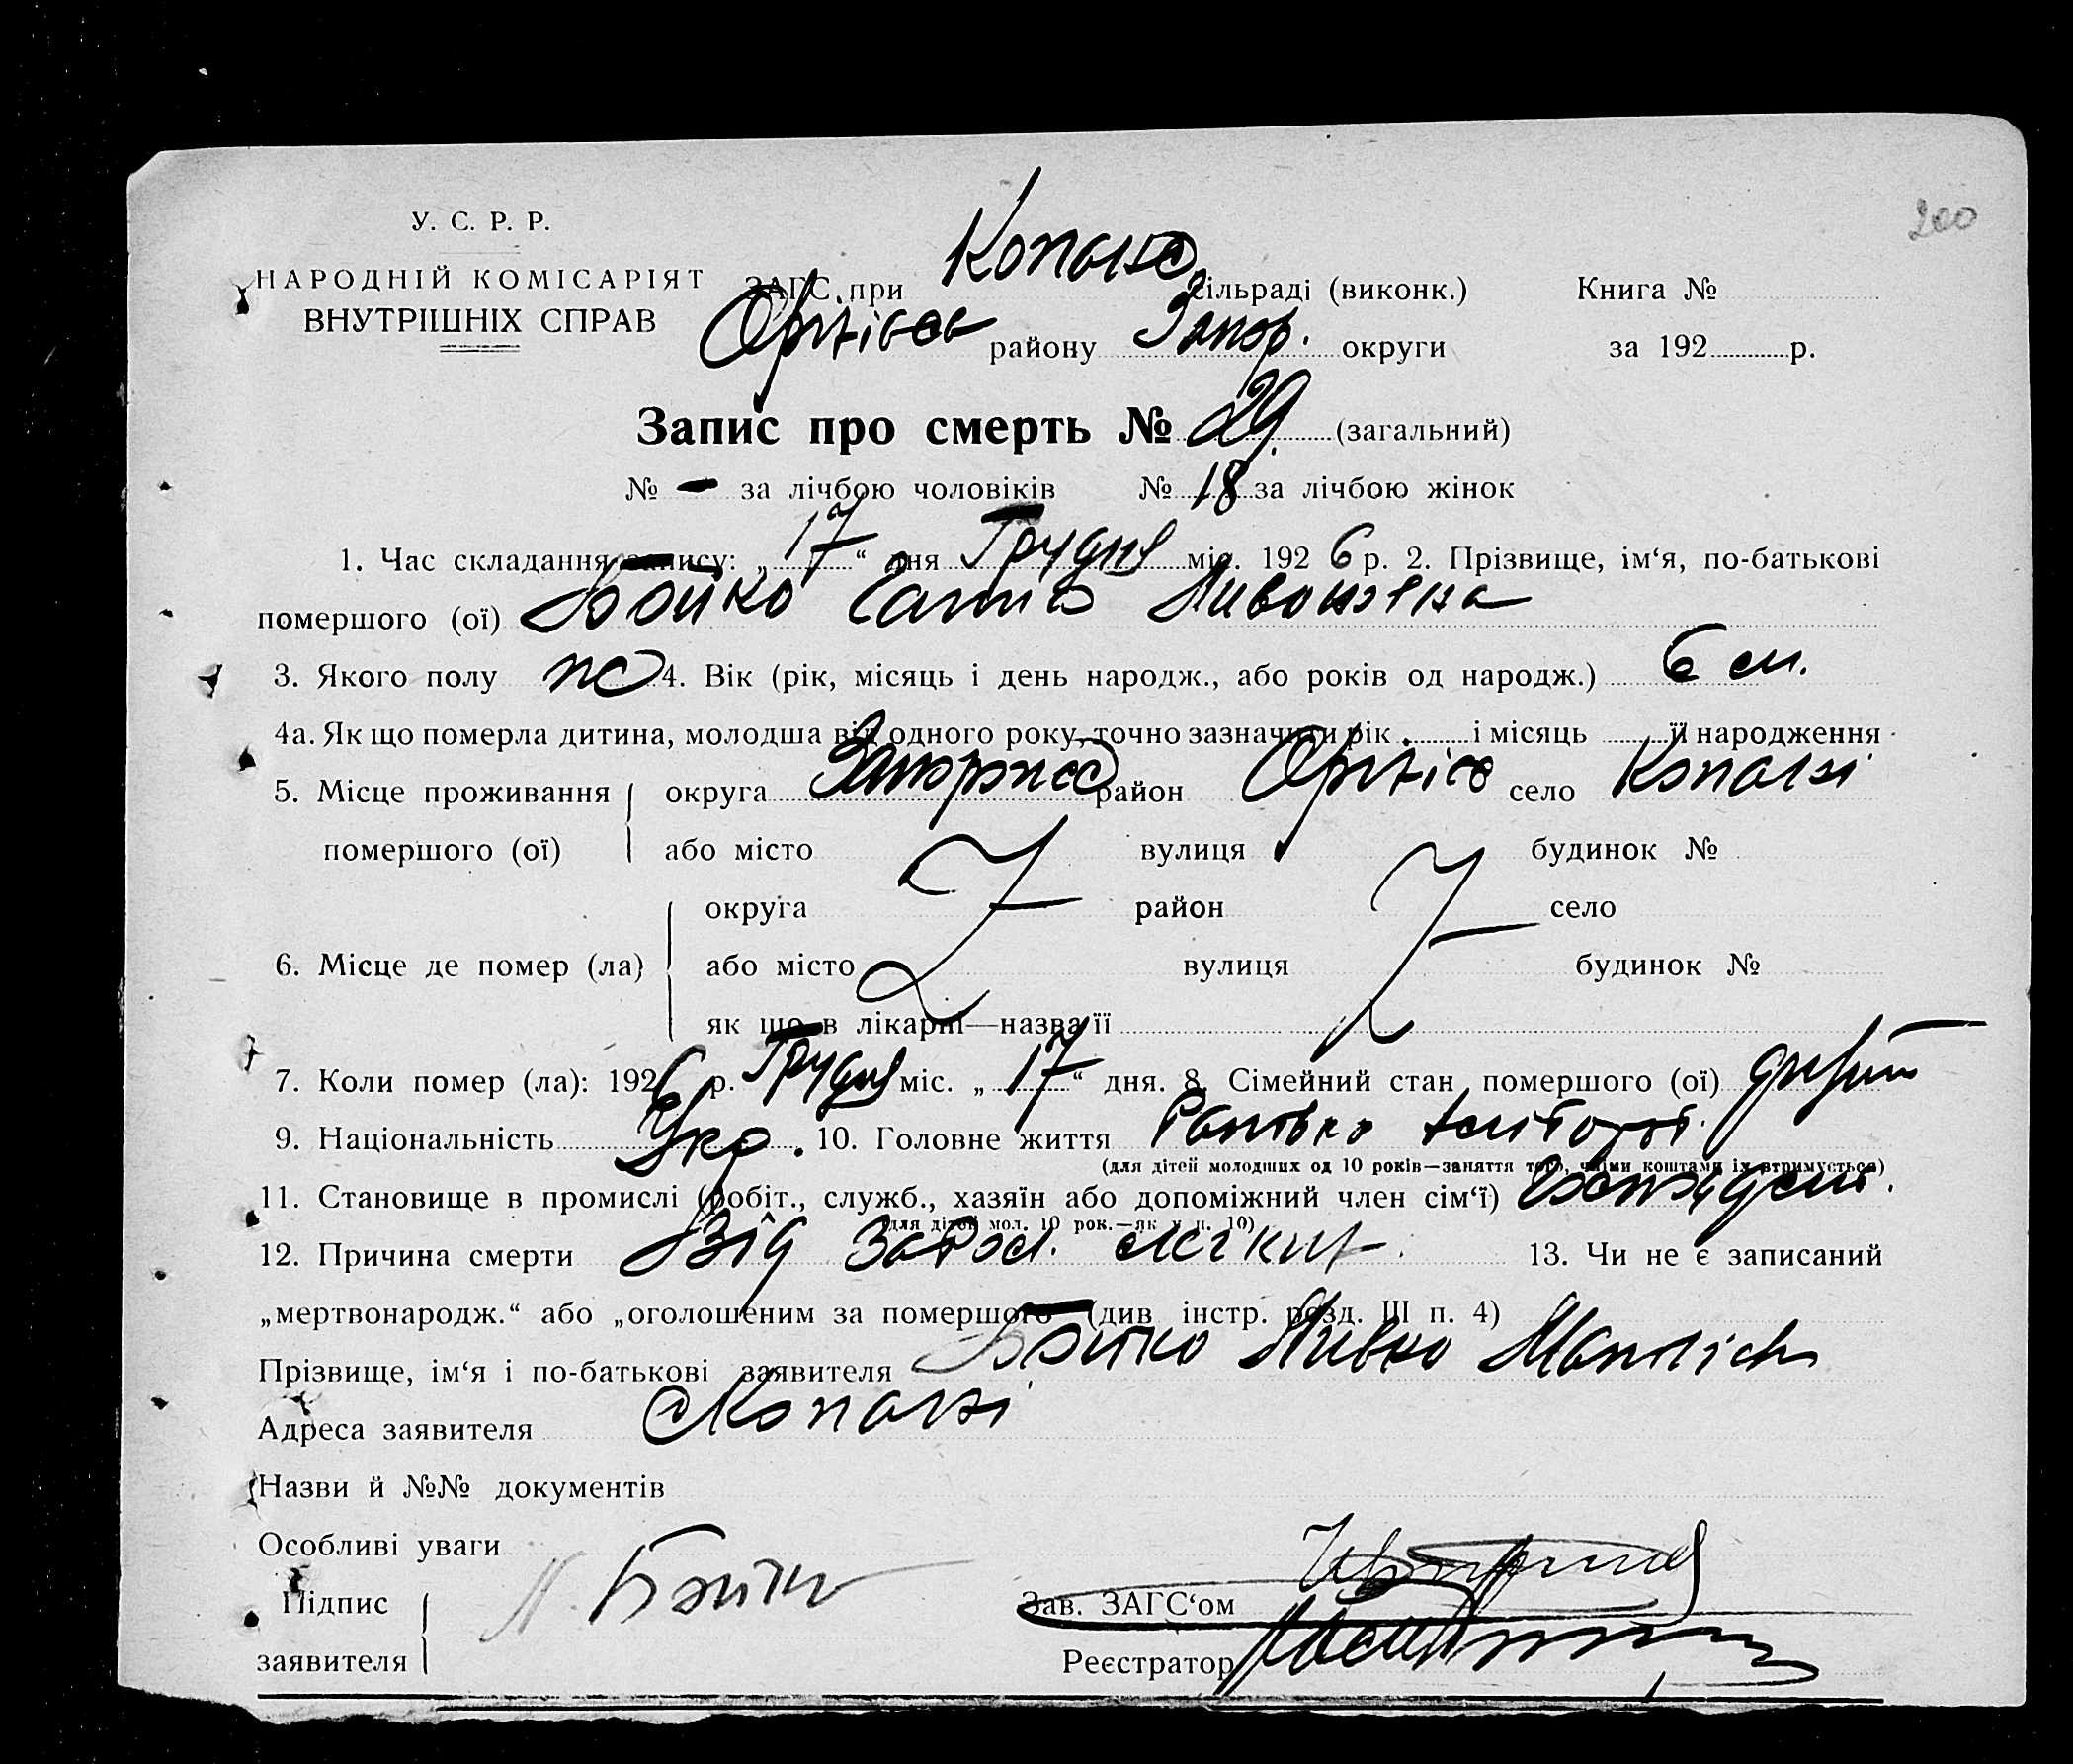 200
У. С. Р. Р.
НАРОДНІЙ КОМІСАРІЯТ
ВНУТРІШНІХ СПРАВ
ЗАГС при Копанс сільраді (виконк.) Книга №
Оріхівськ району Запор. округи за 192 р.
Запис про смерть № 29 (загальний)
№ — за лічбою чоловіків № 18 за лічбою жінок
1. Час складання запису: „17“ дня Грудня міс. 1926 р. 2. Прізвище, ім‘я, по-батькові
помершого (ої) Бойко
3. Якого полу 4. Вік (рік, місяць і день народж., або років од народж.) 6 м.
4а. Як що померла дитина, молодша від одного року, точно зазначити рік і місяць її народження
5. Місце проживання помершого (ої) округа район село Копані
або місто вулиця будинок №
округа район село
6. Місце де помер (ла) або місто вулиця будинок №
як що в лікарні—назва її
7. Коли помер (ла): 1926 р. Грудня міс. „17“ дня. 8. Сімейний стан помершого (ої)
9. Національність Укр. 10. Головне життя
(для дітей молодших од 10 років—заняття того, чиїми коштами їх втримується)
11. Становище в промислі (робіт., служб., хазяїн або допоміжний член сім‘ї)
(для дітей мол. 10 рок.—як у п. 10)
12. Причина смерти Від легких 13. Чи не є записаний
„мертвонародж.“ або „оголошеним за помершого (див інстр. розд. III п. 4)
Прізвище, ім‘я і по-батькові заявителя Бойко
Адреса заявителя Копані
Назви й №№ документів
Особливі уваги
Підпис заявителя Бойко
Зав. ЗАГС‘ом
Реєстратор